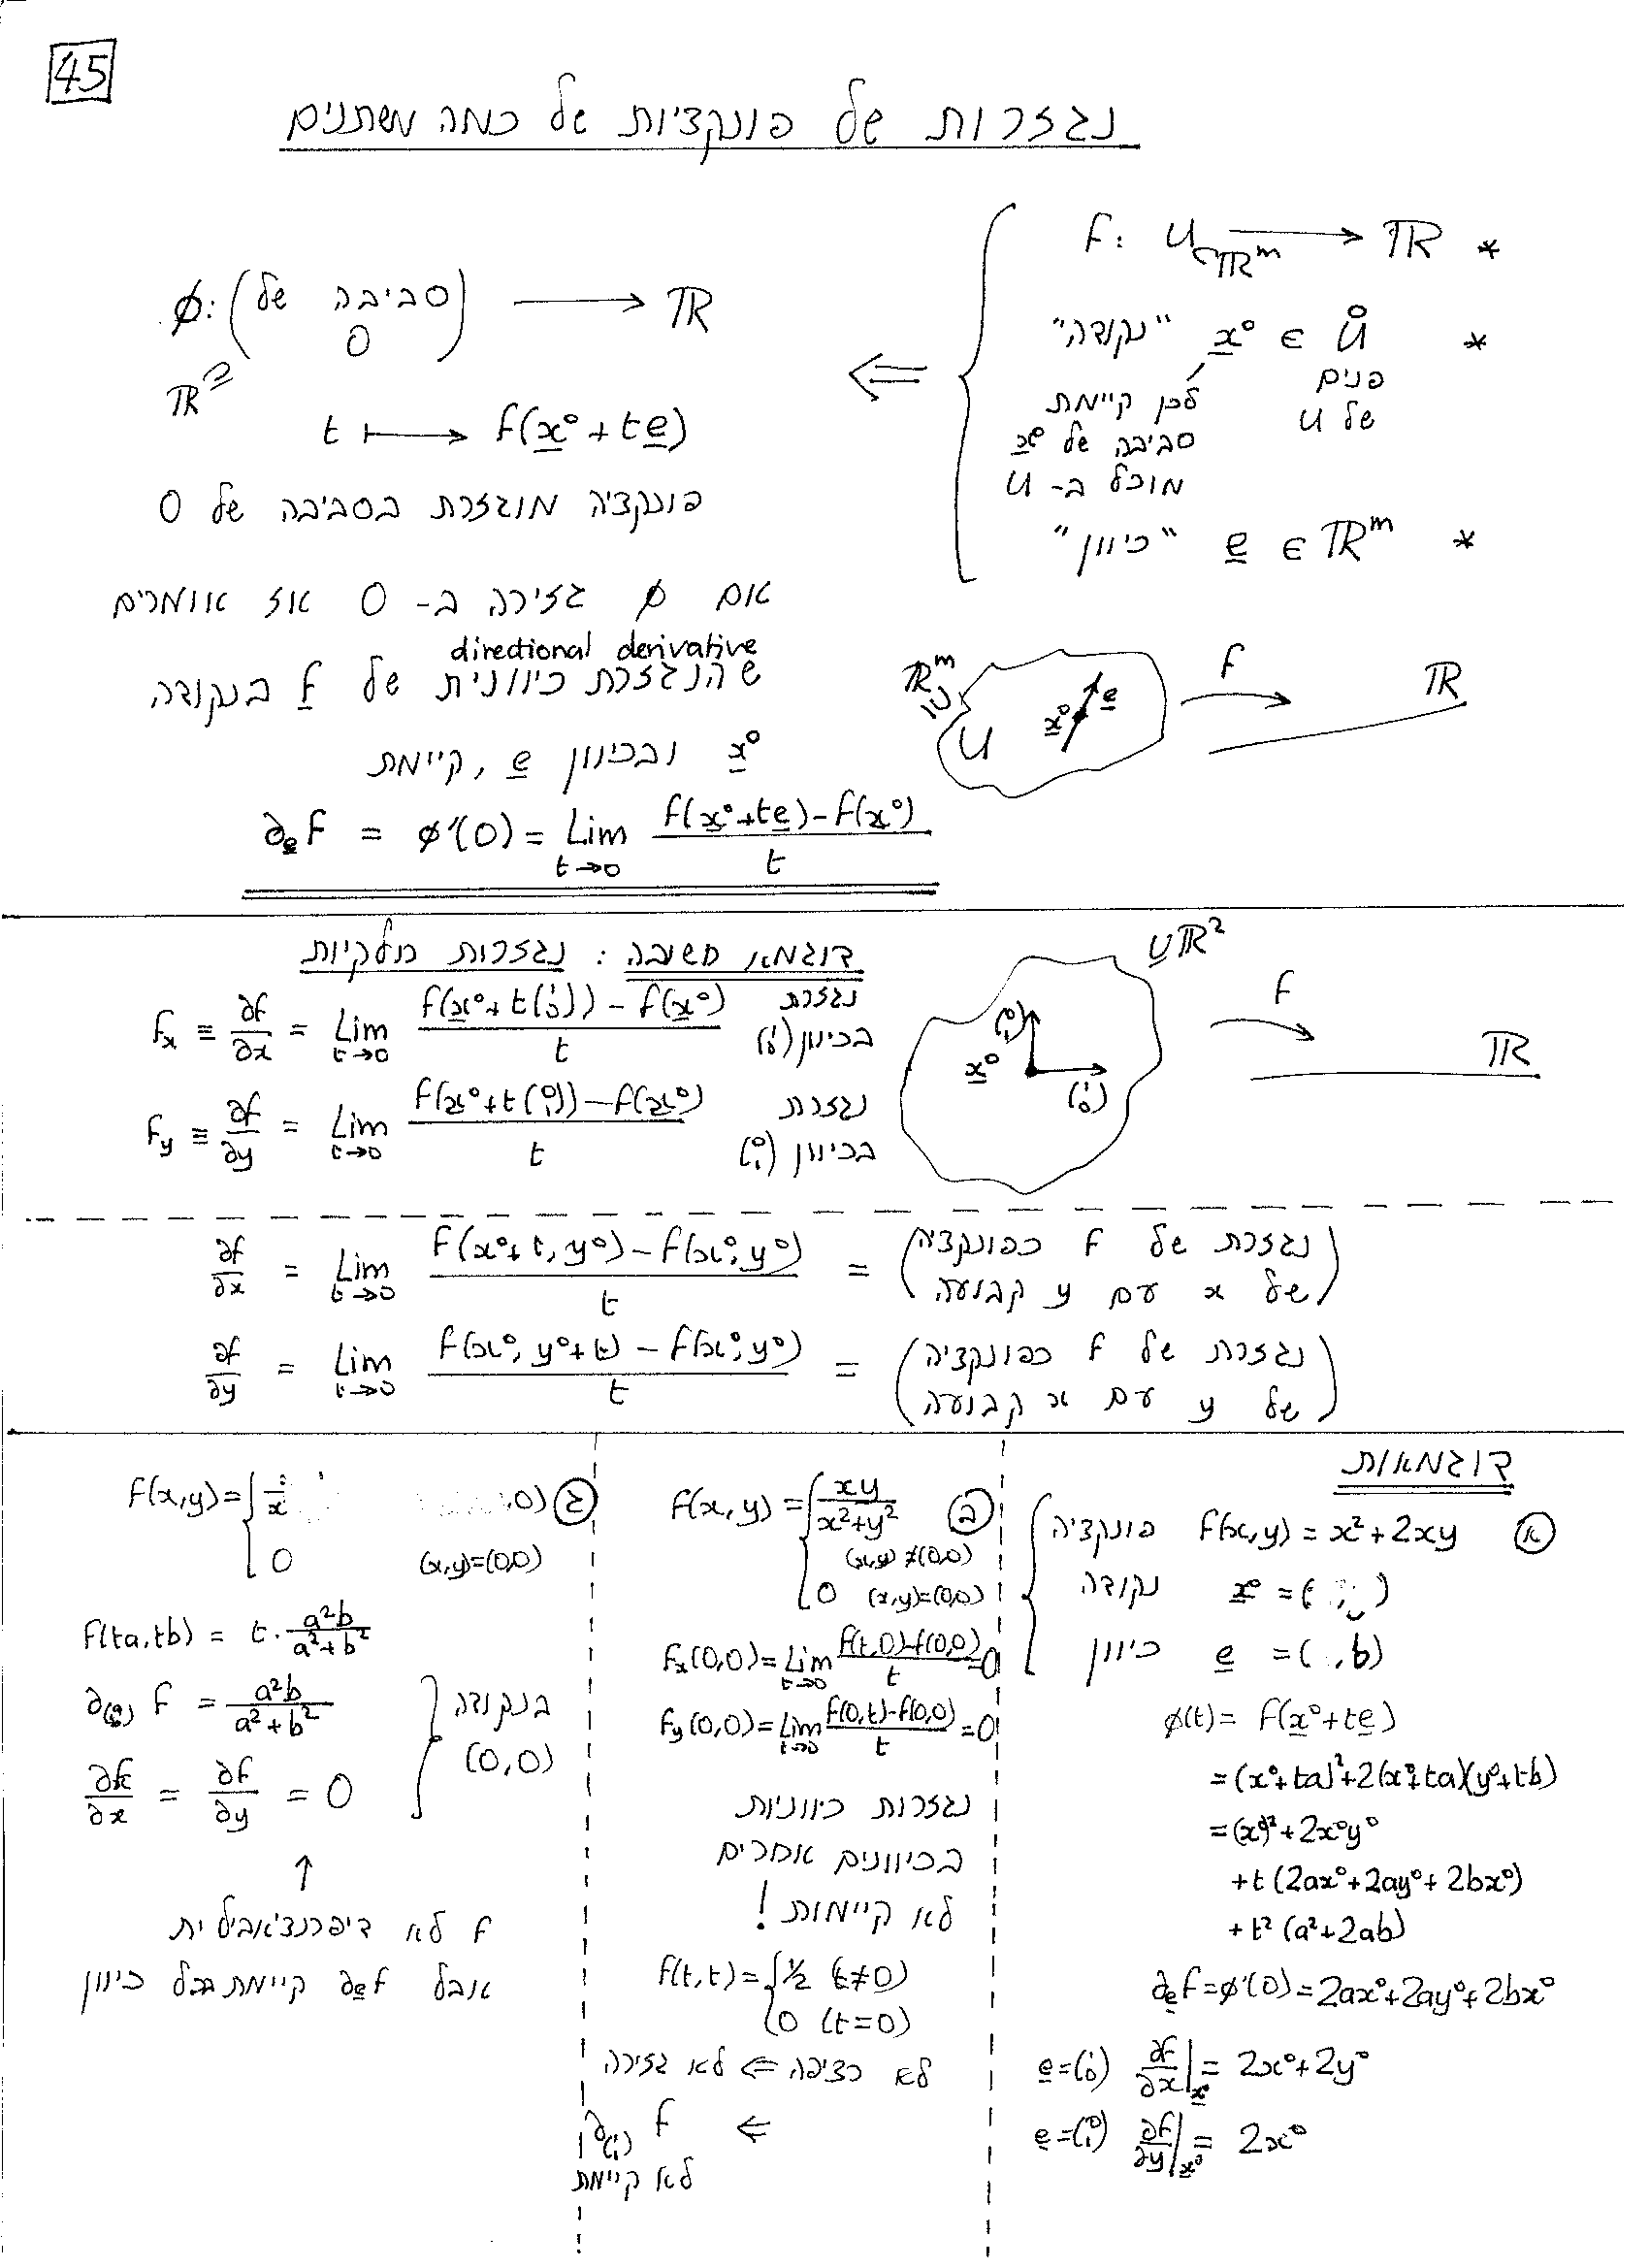 45
נגזרות של פונקציות של כמה משתנים
* f: U ⊂ ℝᵐ ⟶ ℝ
* x⁰ ∈ Ů "נקודה"
פנים של U
לכן קיימת
סביבה של x⁰
מוכל ב- U
* e ∈ ℝᵐ "כיוון"
⇐
φ: (סביבה של 0) ⟶ ℝ
ℝ ⊇
t ⟼ f(x⁰+te)
פונקציה מוגדרת בסביבה של 0
אם φ גזירה ב- 0 אז אומרים
directional derivative
שהנגזרת כיוונית של f בנקודה
x⁰ ובכיוון e, קיימת
∂ₑf = φ'(0) = Lim t→0 (f(x⁰+te)-f(x⁰))/t
ℝᵐ ⊇ U x⁰ e f ℝ
דוגמא חשובה: נגזרות חלקיות
f_x ≡ ∂f/∂x = Lim t→0 (f(x⁰+t(1 0))-f(x⁰))/t נגזרת בכיוון (1 0)
f_y ≡ ∂f/∂y = Lim t→0 (f(x⁰+t(0 1))-f(x⁰))/t נגזרת בכיוון (0 1)
U ℝ² f ℝ
(0 1) x⁰ (1 0)
∂f/∂x = Lim t→0 (f(x⁰+t, y⁰)-f(x⁰, y⁰))/t = (נגזרת של f כפונקציה של x עם y קבועה)
∂f/∂y = Lim t→0 (f(x⁰, y⁰+t)-f(x⁰, y⁰))/t = (נגזרת של f כפונקציה של y עם x קבועה)
דוגמאות
א f(x,y) = x²+2xy פונקציה
x⁰ = ( , ) נקודה
e = ( ,b) כיוון
φ(t) = f(x⁰+te)
=(x⁰+ta)²+2(x⁰+ta)(y⁰+tb)
=(x⁰)²+2x⁰y⁰
+t(2ax⁰+2ay⁰+2bx⁰)
+t²(a²+2ab)
∂ₑf=φ'(0)=2ax⁰+2ay⁰+2bx⁰
e=(1 0) ∂f/∂x|x⁰ = 2x⁰+2y⁰
e=(0 1) ∂f/∂y|x⁰ = 2x⁰
ב f(x,y) = { xy/(x²+y²) (x,y)≠(0,0)
0 (x,y)=(0,0)
f_x(0,0)=Lim t→0 (f(t,0)-f(0,0))/t=0
f_y(0,0)=Lim t→0 (f(0,t)-f(0,0))/t=0
נגזרות כיווניות
בכיוונים אחרים
לא קיימות!
f(t,t) = { 1/2 (t≠0)
0 (t=0)
לא רציפה ⇐ לא גזירה
⇐ ∂(1 1) f
לא קיימת
ג f(x,y)= { x ,0)
0 (x,y)=(0,0)
f(ta,tb) = t·a²b/(a²+b²)
∂(a b) f = a²b/(a²+b²)
∂f/∂x = ∂f/∂y = 0
בנקודה
(0,0)
↑
f לא דיפרנצ'אבילית
אבל ∂ₑf קיימת בכל כיוון